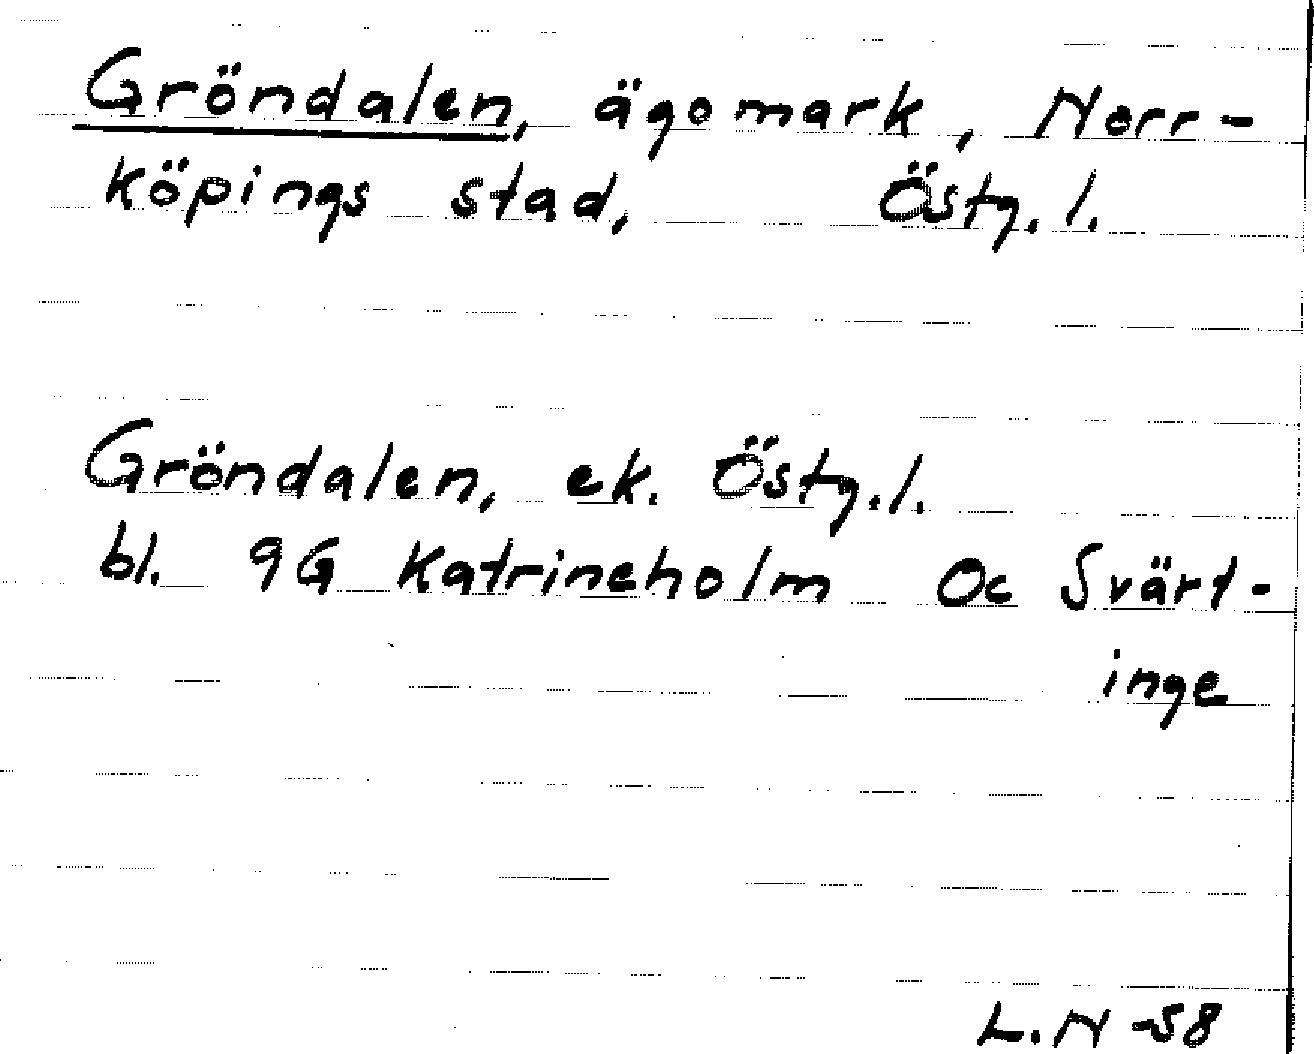 Gröndalen, ägomark, Norr-
köpings stad, Östg.l.
Gröndalen, ek. Östg.l.
bl. 9G Katrineholm Oc Svärt-
inge
L.N -58